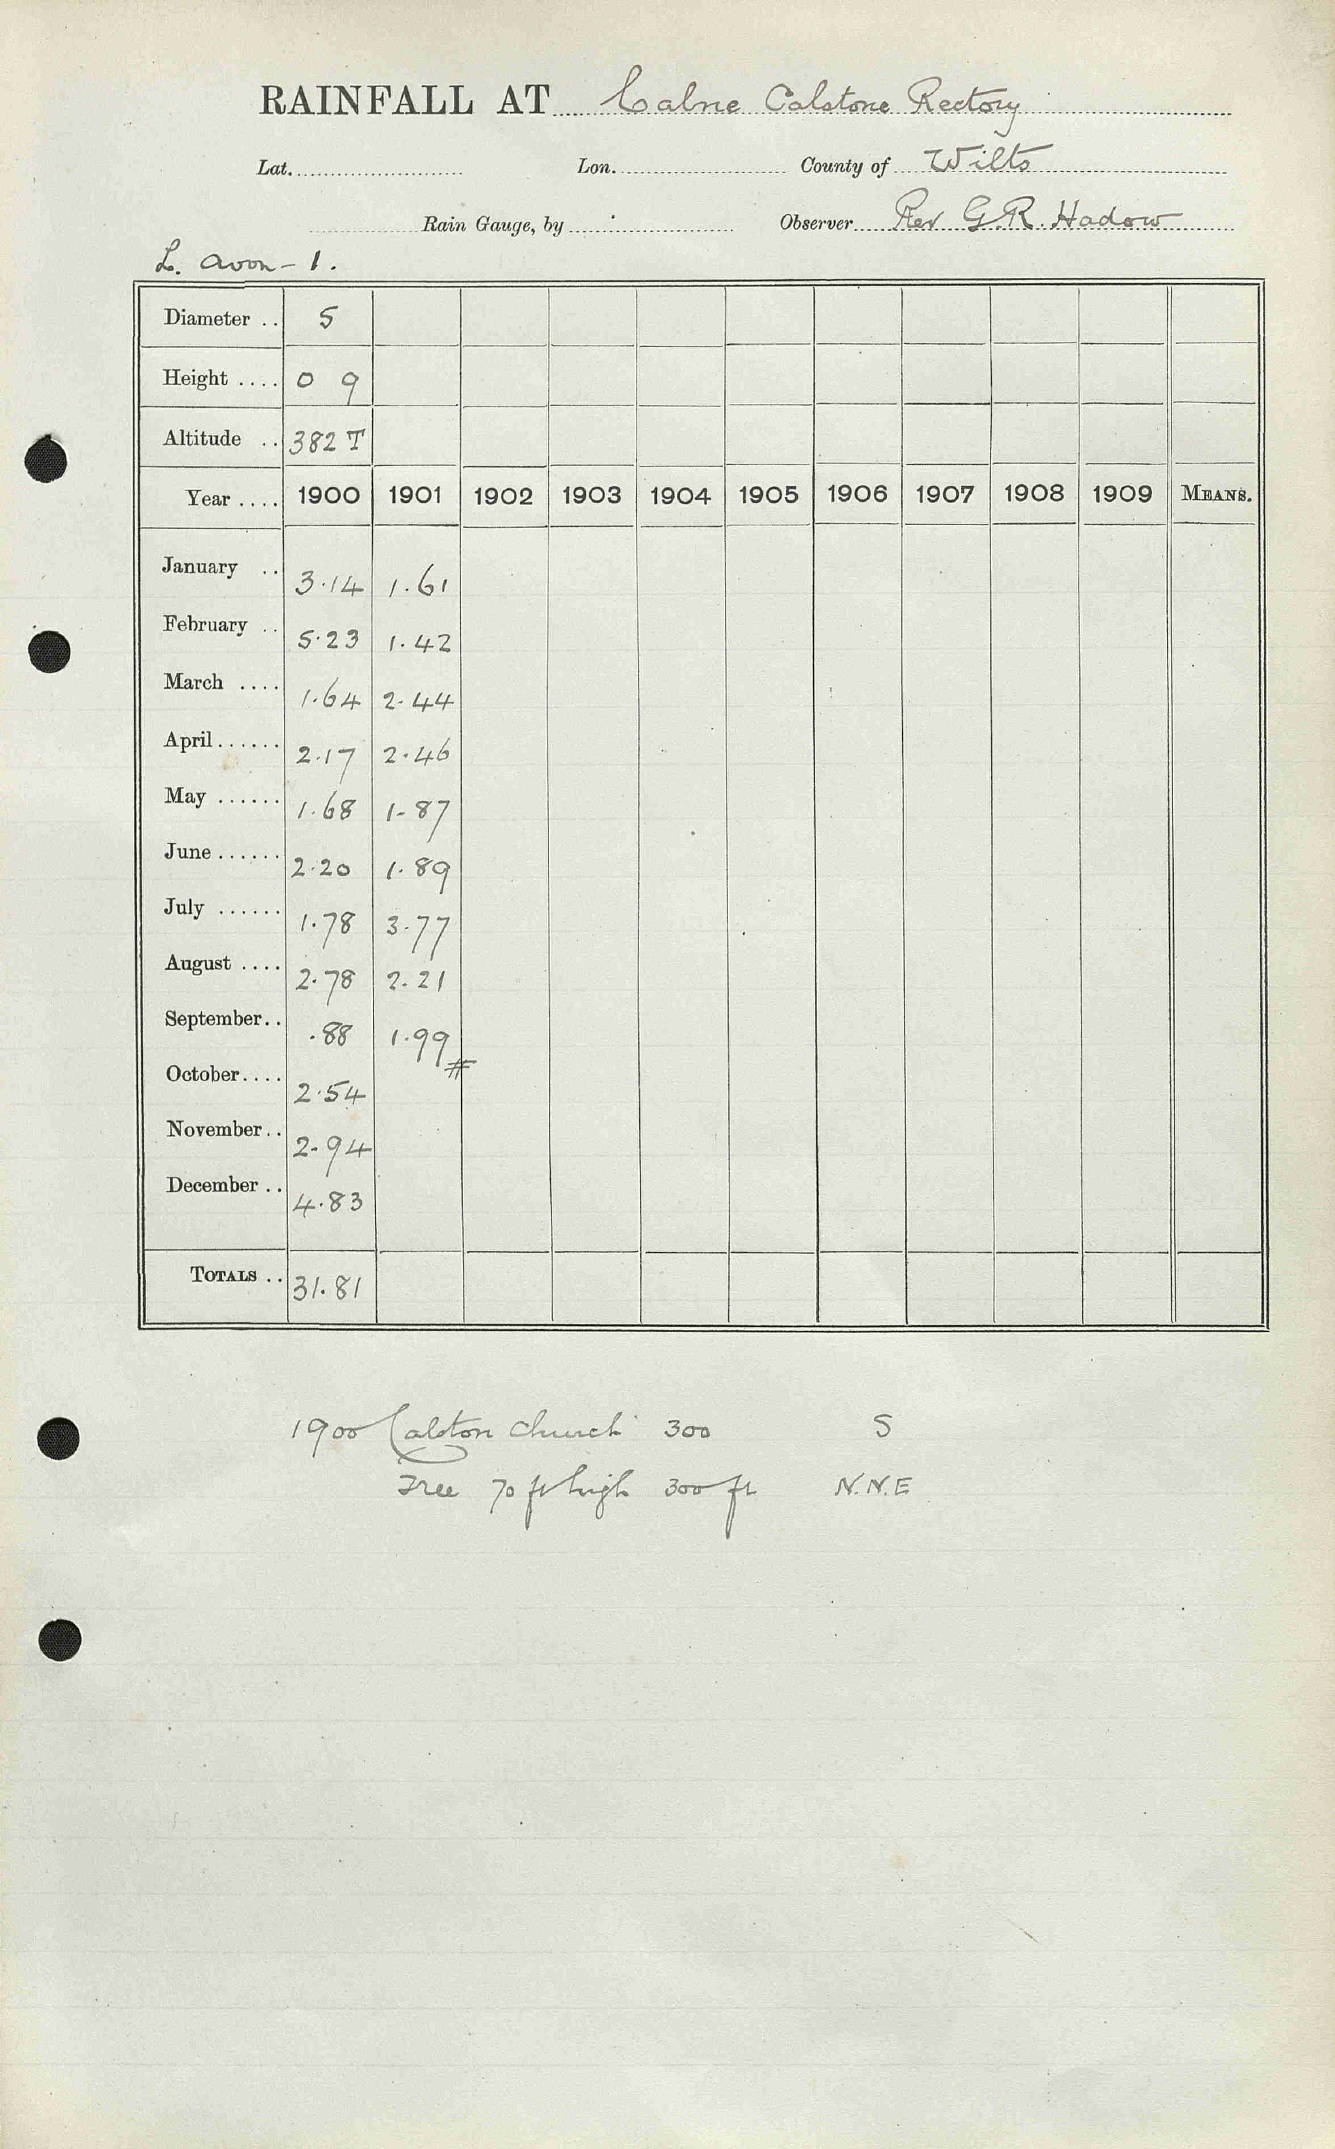 RAINFALL AT Calne Calstone Rectory
Lat. Lon. County of Wilts
Rain Gauge, by Observer Rev G.R. Hadow
L. Avon - 1.
Diameter .. 5
Height .... 0 9
Altitude .. 382 T
Year .... 1900 1901 1902 1903 1904 1905 1906 1907 1908 1909 MEANS.
January .. 3.14 1.61
February .. 5.23 1.42
March .... 1.64 2.44
April ...... 2.17 2.46
May ...... 1.68 1.87
June ...... 2.20 1.89
July ...... 1.78 3.77
August .... 2.78 2.21
September .. .88 1.99 #
October .... 2.54
November .. 2.94
December .. 4.83
TOTALS .. 31.81
1900 Calston Church 300 S
Tree 70 ft high 300 ft N.N.E